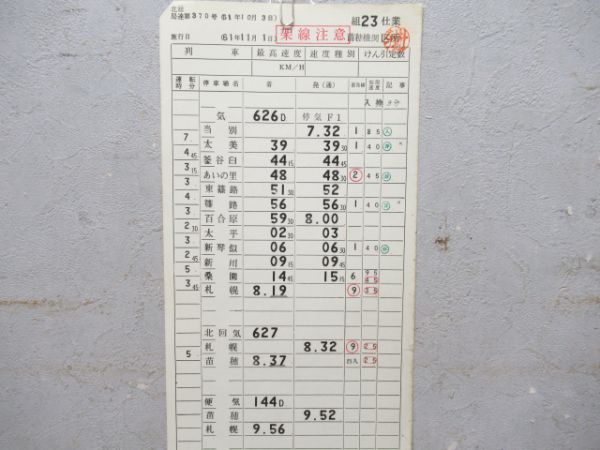 北総
局達第370号(61年10月3日) 組23仕業
施行日 (61年11月1日) 架線注意 苗穂機関区所
列 車 最高速度 速度種別 けん引定数
KM/H
運転時分 停車駅名 着 発(通) 着発線 制限速度 記事
入換
気 626D 停気F1
当別 7.32 1 85
7 太美 39 39 30 1 40
4 45 釜谷臼 44 15 44 45
3 15 あいの里 48 48 30 2 45
3 東篠路 51 30 52
4 篠路 56 56 30 1 40
3 百合原 59 30 8.00
2 30 太平 02 30 03
3 新琴似 06 06 30 1 40
2 45 新川 09 15 09 45
5 桑園 14 45 15 15 6 95 45
3 45 札幌 8.19 9 35
北回気 627
札幌 8.32 9 25
5 苗穂 8.37 25
便気 144D
苗穂 9.52
札幌 9.56